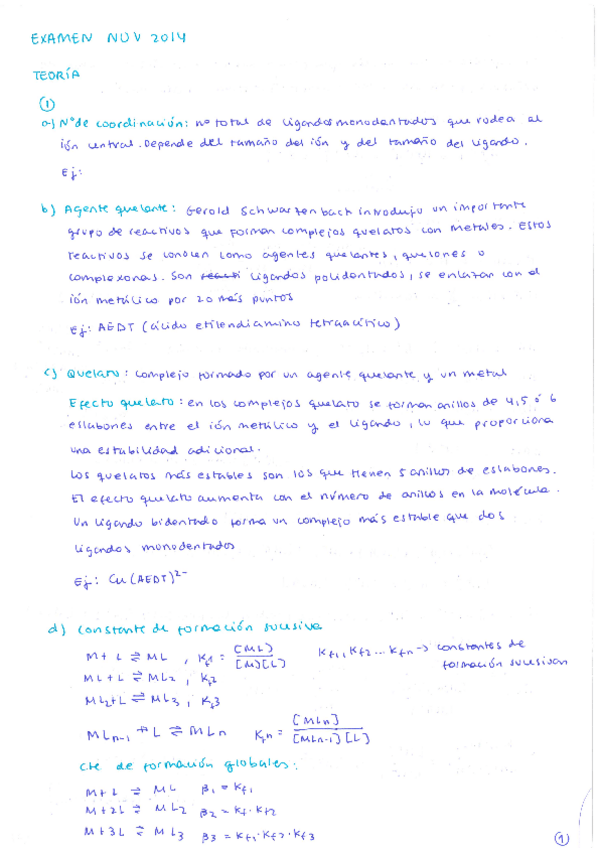 EXAMEN NOV 2014
TEORÍA
①
a) Nº de coordinación: nº total de ligandos monodentados que rodea al
ión central. Depende del tamaño del ión y del tamaño del ligando.
Ej:
b) Agente quelante: Gerold Schwarzenbach introdujo un importante
grupo de reactivos que forman complejos quelatos con metales. Estos
reactivos se conocen como agentes quelantes, quelones o
complexonas. Son ligandos polidentados, se enlazan con el
ión metálico por 2 o más puntos
Ej: AEDT (ácido etilendiamino tetraacético)
c) Quelato: complejo formado por un agente quelante y un metal
Efecto quelato: en los complejos quelato se forman anillos de 4, 5 ó 6
eslabones entre el ión metálico y el ligando, lo que proporciona
una estabilidad adicional.
Los quelatos más estables son los que tienen 5 anillos de eslabones.
El efecto quelato aumenta con el número de anillos en la molécula.
Un ligando bidentado forma un complejo más estable que dos
ligandos monodentados
Ej: Cu(AEDT)²⁻
d) Constante de formación sucesiva
M + L ⇌ ML , Kf1 = [ML] / [M][L] Kf1, Kf2 ... Kfn → constantes de
formación sucesivas
ML + L ⇌ ML2 , Kf2
ML2 + L ⇌ ML3 , Kf3
MLn-1 + L ⇌ MLn Kfn = [MLn] / [MLn-1][L]
Cte de formación globales:
M + L ⇌ ML β1 = Kf1
M + 2L ⇌ ML2 β2 = Kf1·Kf2
M + 3L ⇌ ML3 β3 = Kf1·Kf2·Kf3
①